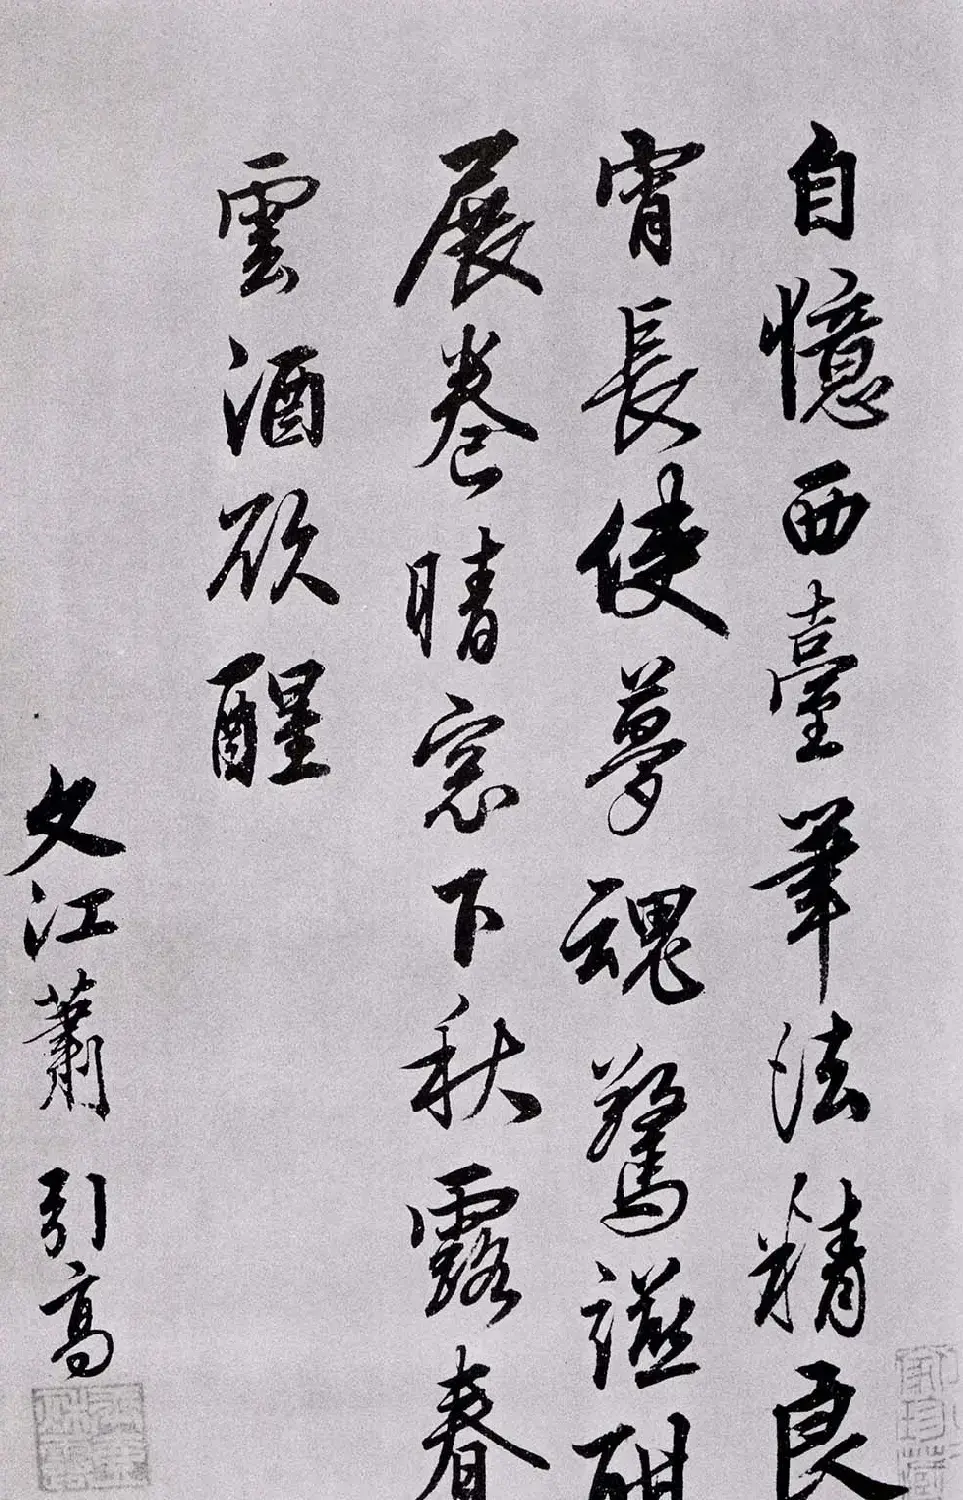 自憶西臺筆法精良
宵長使夢魂驚讌酣
展卷晴窓下秋露春
雲酒欣醒
文江蕭引高